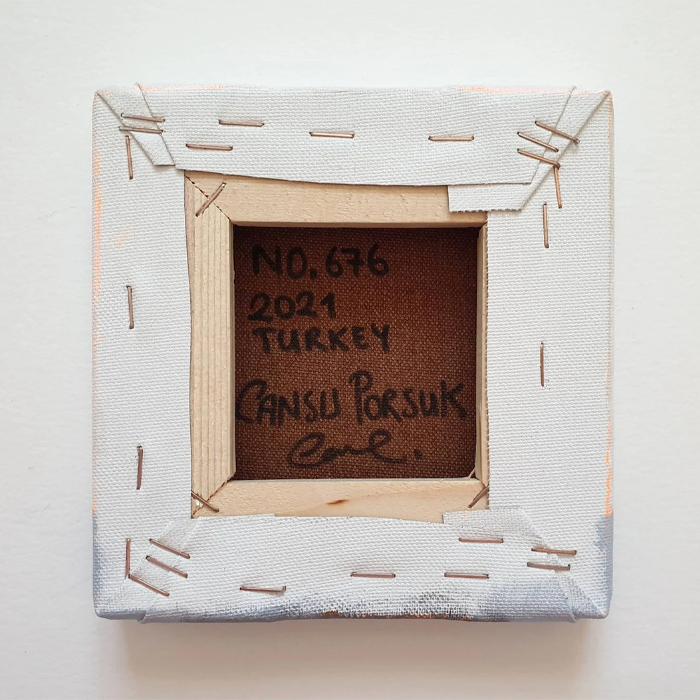 NO. 676
2021
TURKEY
CANSU PORSUK